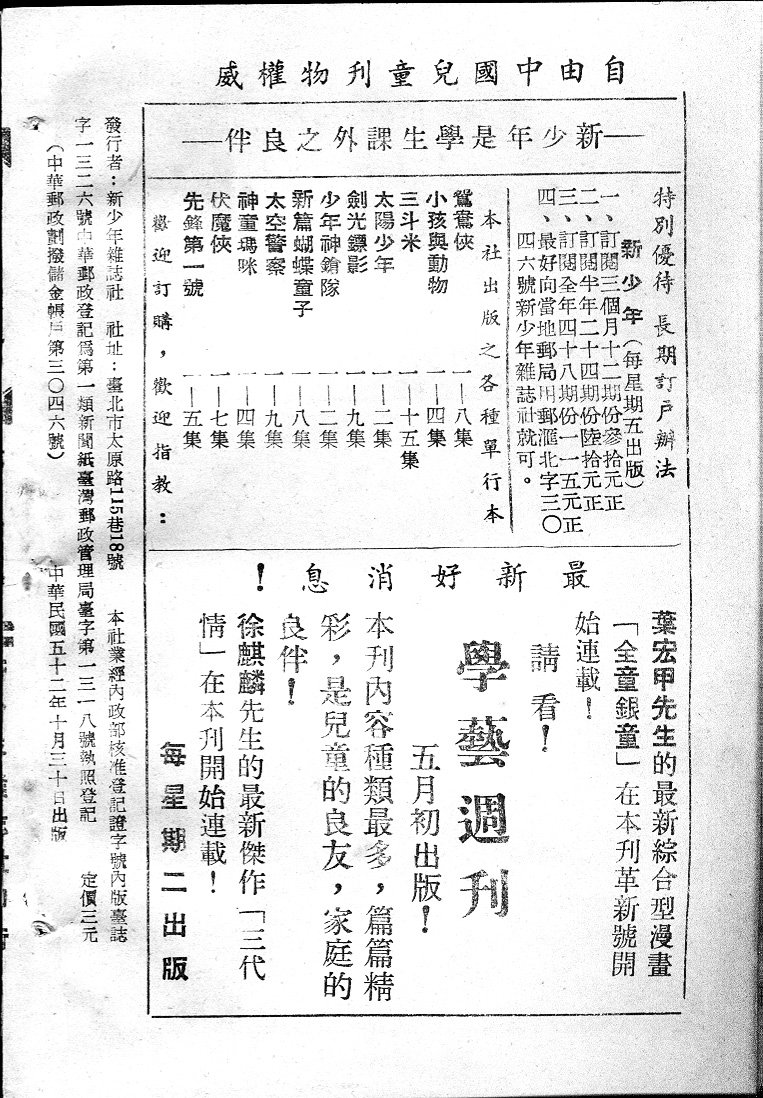 自由中國兒童刊物權威
——新少年是學生課外之良伴——
特別優待 長期訂戶辦法
新少年（每星期五出版）
一、訂閱三個月十二期份參拾元正
二、訂閱半年二十四期份陸拾元正
三、訂閱全年四十八期份一一五元正
四、最好向當地郵局用郵滙北字三〇
四六號新少年雜誌社就可。
本社出版之各種單行本
鴛鴦俠 一—八集
小孩與動物 一—四集
三斗米 一—十五集
太陽少年 一—二集
劍光鏢影 一—九集
少年神鎗隊 一—二集
新篇蝴蝶童子 一—八集
太空警察 一—九集
神童瑪咪 一—四集
伏魔俠 一—七集
先鋒第一號 一—五集
歡迎訂購，歡迎指教：
最新好消息！
葉宏甲先生的最新綜合型漫畫
「全童銀童」在本刊革新號開
始連載！
請看！
學藝週刊
五月初出版！
本刊內容種類最多，篇篇精
彩，是兒童的良友，家庭的
良伴！
徐麒麟先生的最新傑作「三代
情」在本刊開始連載！
每星期二出版
發行者：新少年雜誌社 社址：臺北市太原路115巷18號 本社業經內政部核准登記證字號內版臺誌
字一三二六號中華郵政登記爲第一類新聞紙臺灣郵政管理局臺字第一三一八號執照登記 定價三元
（中華郵政劃撥儲金帳戶第三〇四六號） 中華民國五十二年十月三十日出版